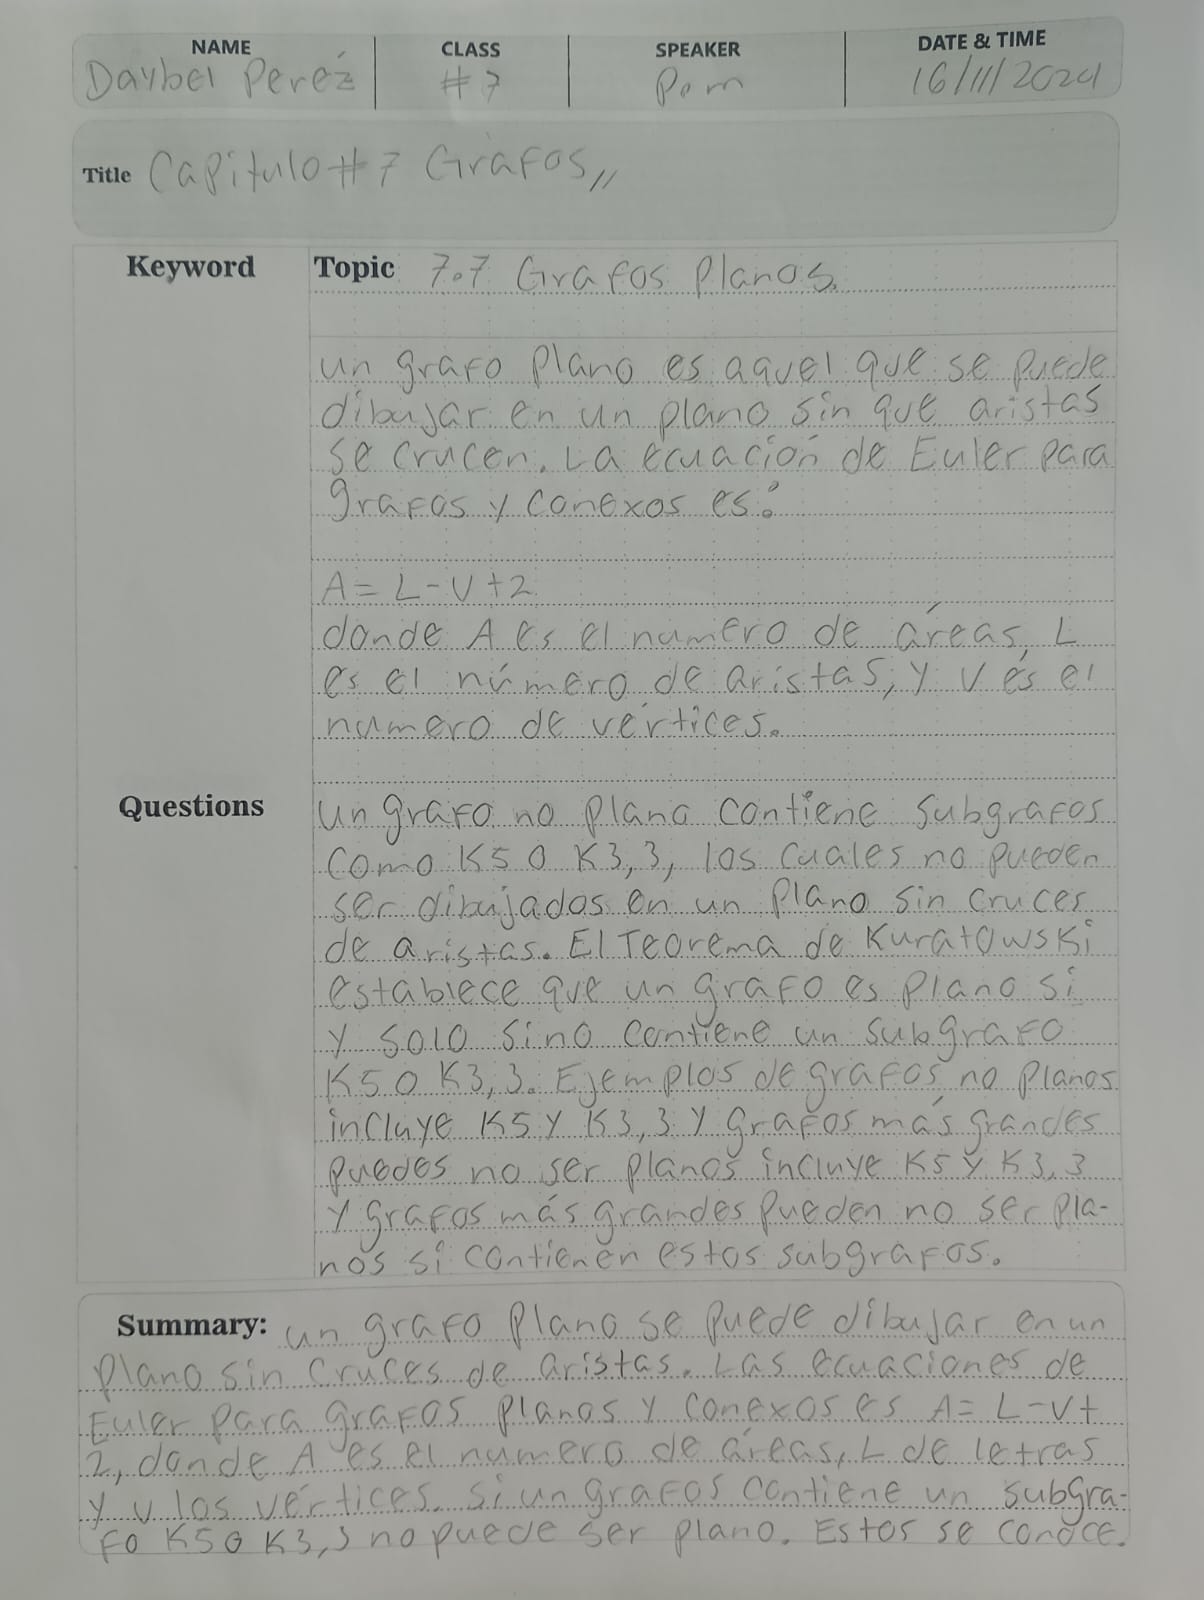 NAME CLASS SPEAKER DATE & TIME
Daybel Pereź #7 Pom 16/11/2024
Title Capitulo #7 Grafos,,
Keyword Topic 7.7 Grafos Planos.
un grafo plano es aquel que se puede
dibujar en un plano sin que aristas
se crucen. La ecuación de Euler para
grafos y conexos es:
A = L - V + 2
donde A es el numero de áreas, L
es el número de aristas, y V es el
numero de vértices.
Questions un grafo no plano contiene subgrafos
como K5 o K3,3, los cuales no pueden
ser dibujados en un plano sin cruces
de aristas. El Teorema de Kuratowski
establece que un grafo es plano si
y solo sino contiene un subgrafo
K5 o K3,3. Ejemplos de grafos no planos
incluye K5 y K3,3 y grafos más grandes
puedes no ser planos incluye K5 y K3,3
y grafos más grandes pueden no ser pla-
nos si contienen estos subgrafos.
Summary: un grafo plano se puede dibujar en un
plano sin cruces de aristas. Las ecuaciones de
Euler para grafos planos y conexos es A = L - V +
2, donde A es el numero de áreas, L de letras
y v los vértices. si un grafos contiene un subgra-
fo K5 o K3,3 no puede ser plano. Estos se conoce.